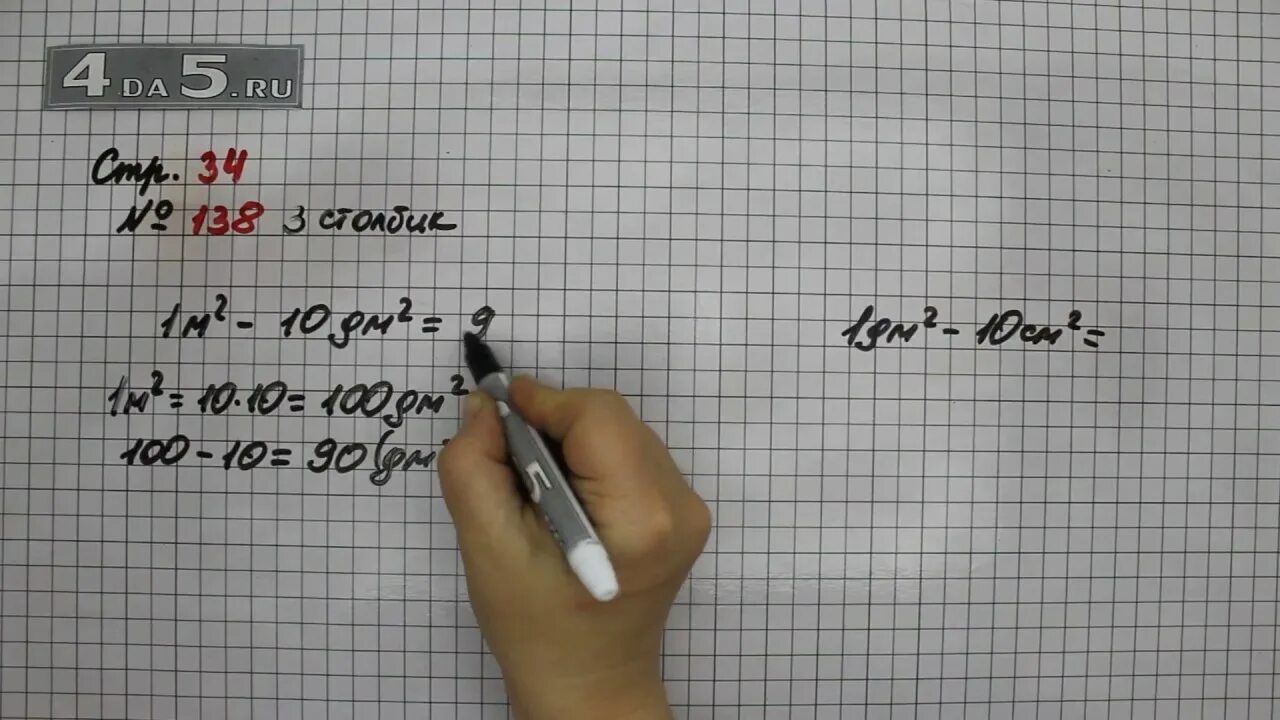 4DA5.RU
Стр. 34
№ 138 3 столбик
1м² - 10 дм² = 9
1м² = 10·10 = 100 дм²
100 - 10 = 90 (дм²
1 дм² - 10 см² =
5